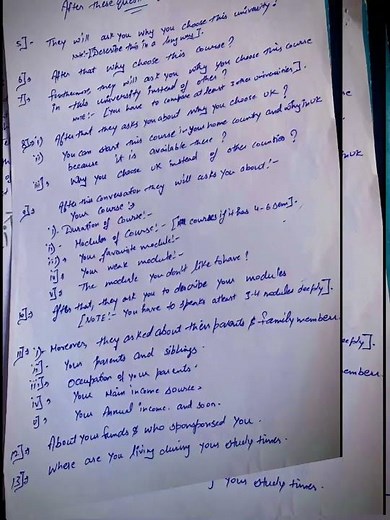 After these ques
5]- They will ask you why you choose this university?
NOTE:- [Describe this in a long way].
6]→ After that why choose this course?
7]→ Furthermore, they will ask you why you choose this course
in this university instead of other?
NOTE:- [you have to compare atleast 3 other universities].
8]→ i) After that they asks you about why you choose UK?
ii) You can start this course in your home county and why in UK
because it is available there?
iii) Why you choose UK instead of other countries?
9]→ After this conversation they will asks you about!-
Your course:→
i) Duration of Course:-
ii) Modules of Course:- [courses if it has 4-6 sem].
iii) Your favourite module:-
iv) Your weak module:-
v) The module you don't like to have!
10]→ After that, they ask you to describe your modules
[NOTE:- You have to speaks atleast 3-4 modules deeply].
11]→ i) Moreover they asked about their parents & family members
ii) Your parents and siblings.
iii) Occupation of your parents.
iv) Your Main income source.
v) Your Annual income. and soon.
12]→ About your funds & who sponponsed you.
13]→ Where are you living during your study times.
your study times.
in UK
UK
eeply].
embers